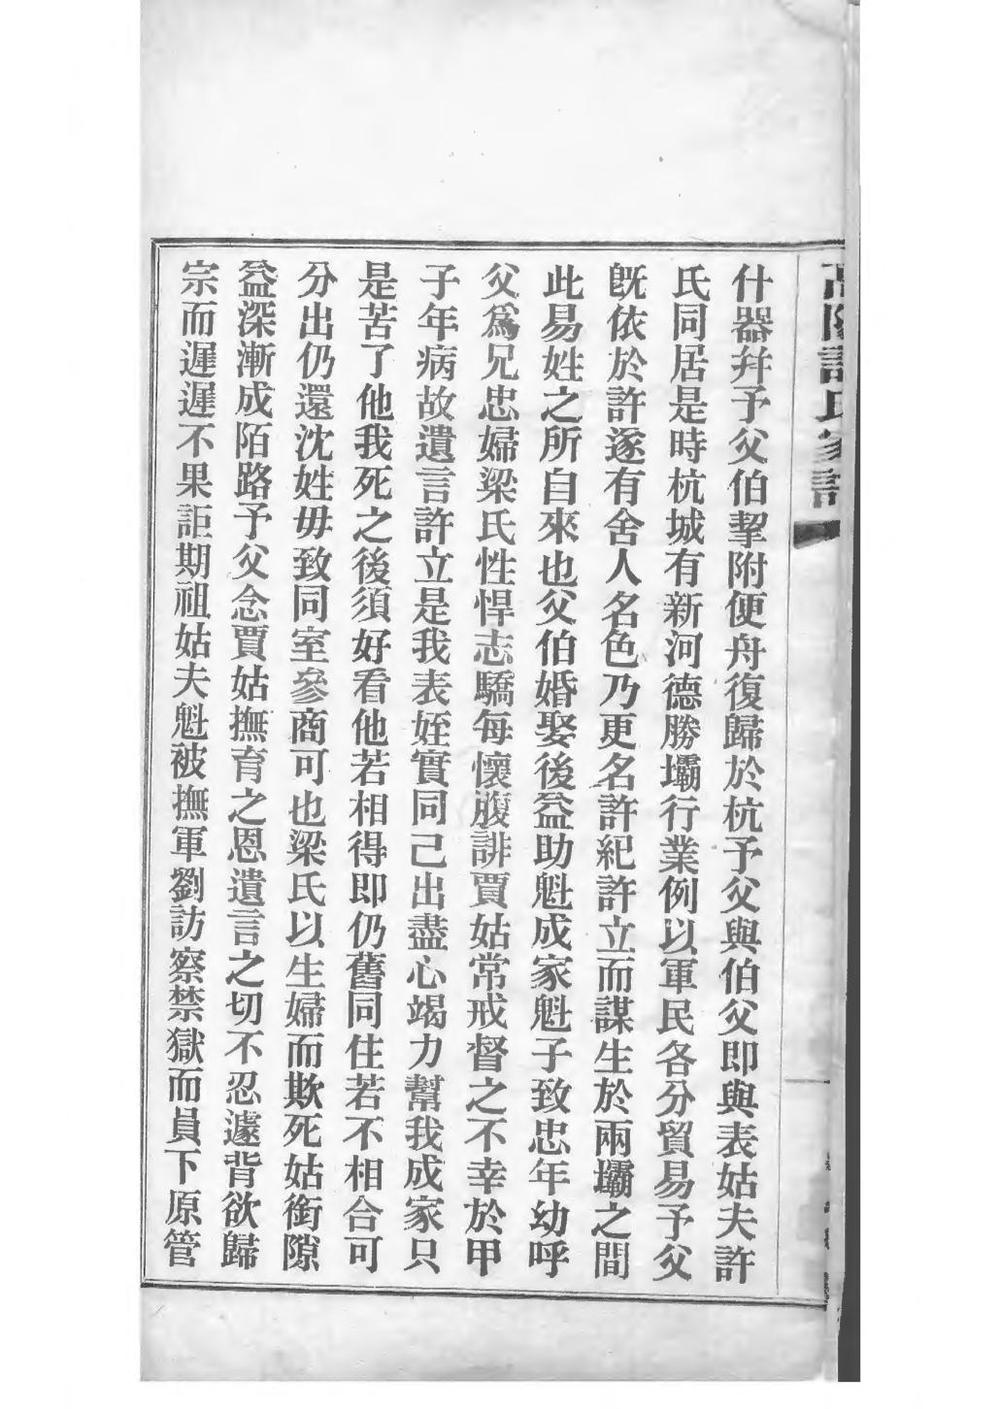 高陽許氏家譜
什器幷予父伯挈附便舟復歸於杭予父與伯父即與表姑夫許
氏同居是時杭城有新河德勝壩行業例以軍民各分貿易予父
旣依於許遂有舍人名色乃更名許紀許立而謀生於兩壩之間
此易姓之所自來也父伯婚娶後益助魁成家魁子致忠年幼呼
父爲兄忠婦梁氏性悍志驕每懷腹誹賈姑常戒督之不幸於甲
子年病故遺言許立是我表姪實同己出盡心竭力幫我成家只
是苦了他我死之後須好看他若相得即仍舊同住若不相合可
分出仍還沈姓毋致同室參商可也梁氏以生婦而欺死姑銜隙
益深漸成陌路予父念賈姑撫育之恩遺言之切不忍遽背欲歸
宗而遲遲不果詎期祖姑夫魁被撫軍劉訪察禁獄而員下原管